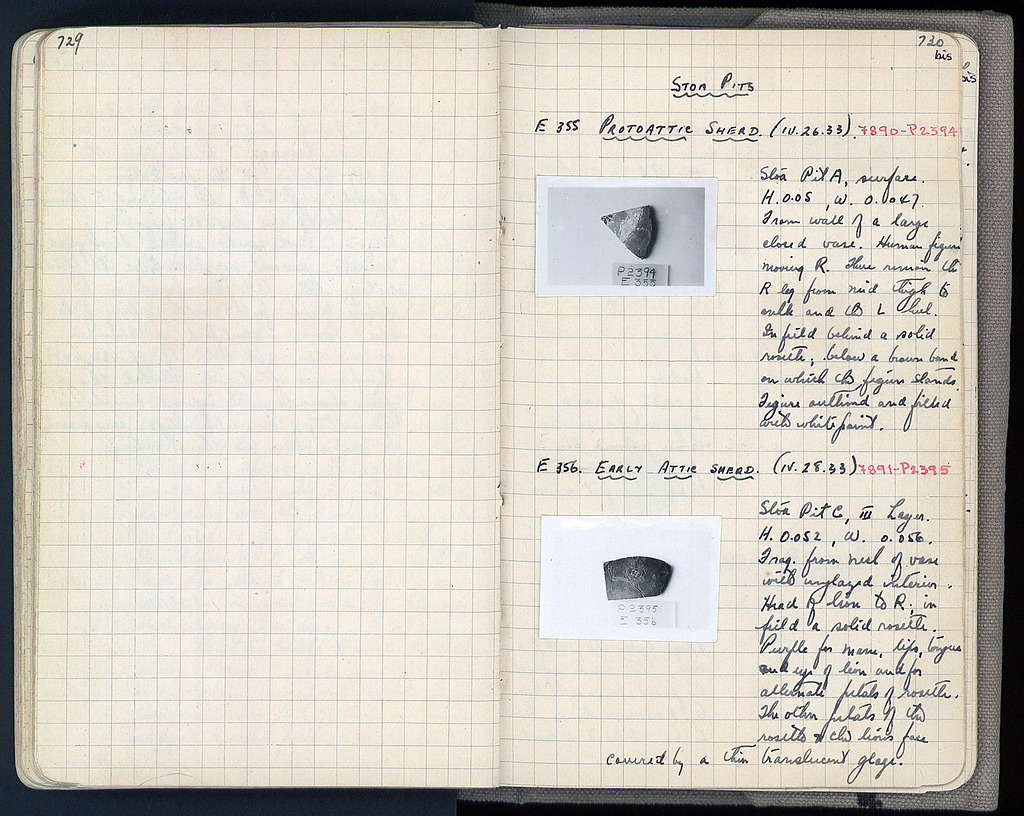 729
730
bis
Stoa Pits
E 355 Protoattic Sherd. (IV.26.33). 7890-P2394
P 2394
E 355
Stoa Pit A, surface.
H. 0.05, W. 0.047.
From wall of a large
closed vase. Human figure
moving R. There remain the
R leg from mid thigh to
ankle and the L heel.
In field behind a solid
rosette; below a brown band
on which the figure stands.
Figure outlined and filled
with white paint.
E 356. Early Attic Sherd. (IV.28.33) 7891-P2395
P 2395
E 356
Stoa Pit C, III Layer.
H. 0.052, W. 0.056.
Frag. from neck of vase
with unglazed interior.
Head of lion to R; in
field a solid rosette.
Purple for mane, lips, tongue
and eye of lion and for
alternate petals of rosette.
The other petals of the
rosette & the lions face
covered by a thin translucent glaze.